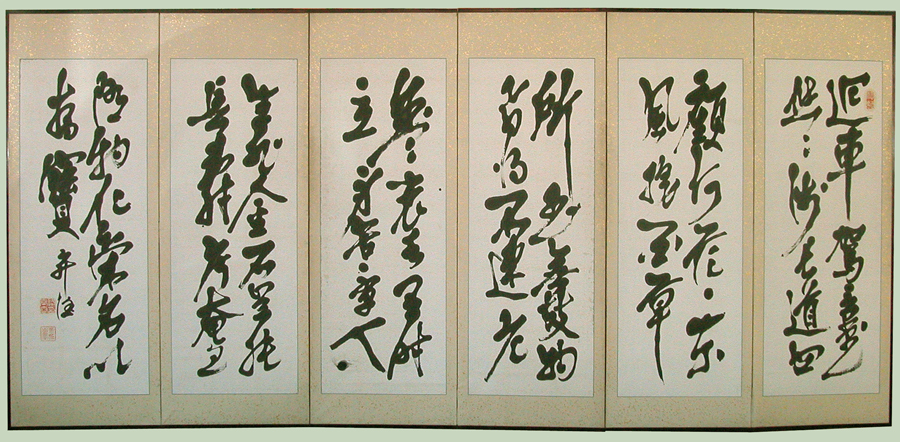 迴車駕言邁
悠々涉長道四
顧何茫々東
風搖百草
所遇無故物
焉得不速老
盛衰各有時
立身苦不早人
生非金石豈能
長壽考奄忽
隨物化榮名以
為寶